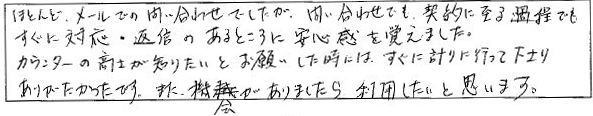 ほとんど、メールでの問い合わせでしたが、問い合わせでも、契約に至る過程でも
すぐに対応・返信のあるところに安心感を覚えました。
カウンターの高さが知りたいとお願いした時には、すぐに計りに行って下さり
ありがたかったです。また、機会がありましたら利用したいと思います。